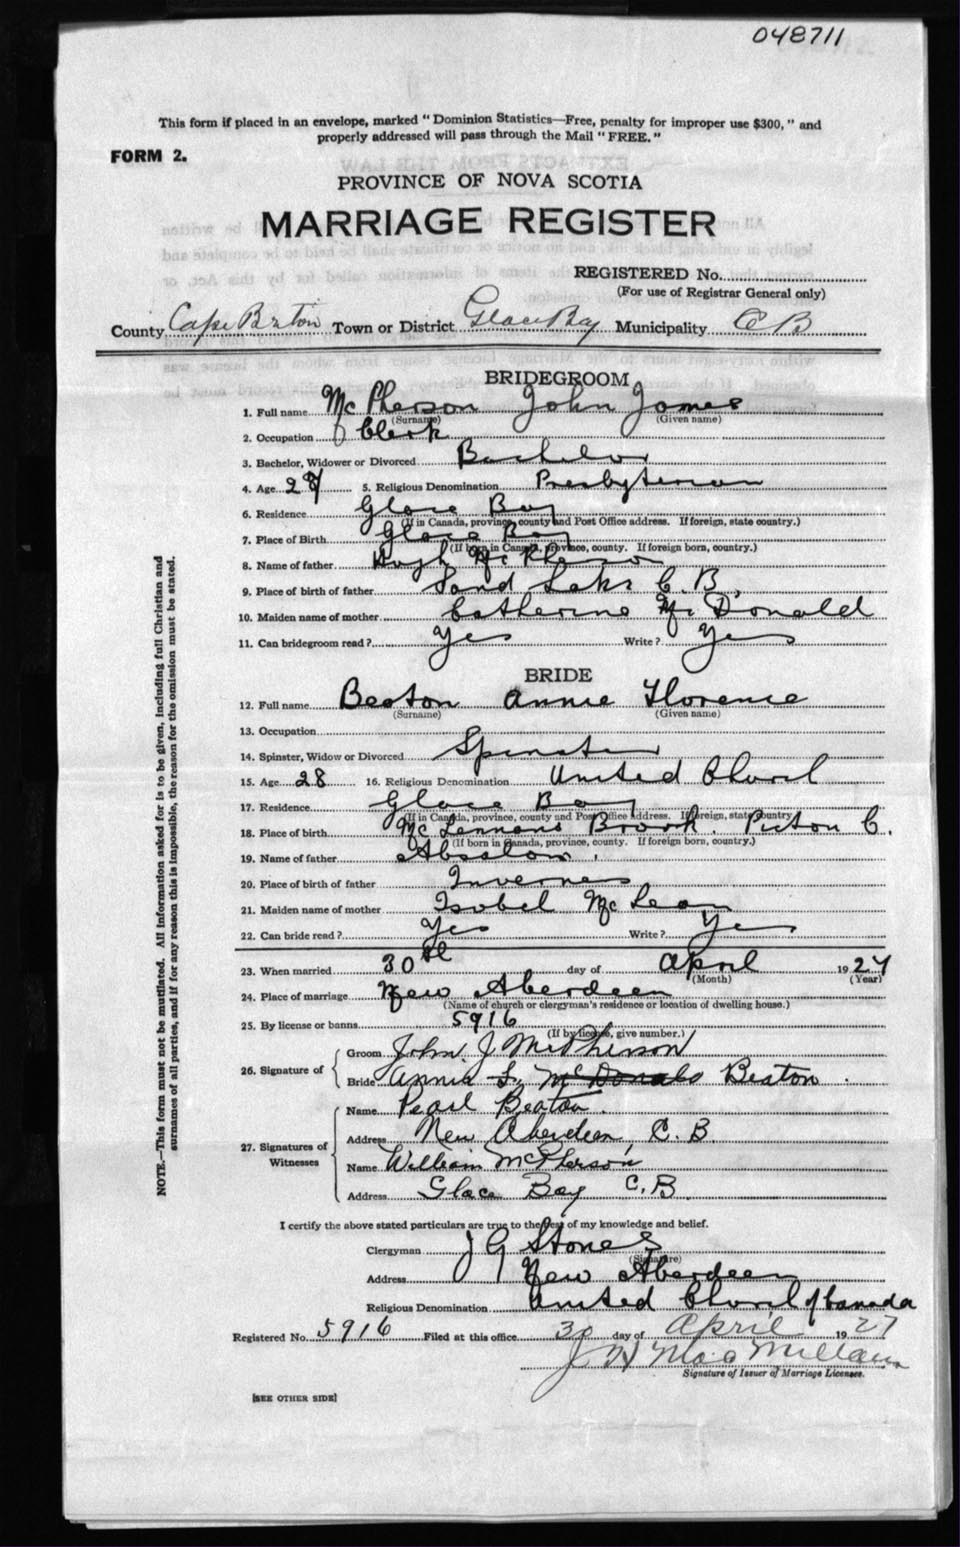 048711
This form if placed in an envelope, marked "Dominion Statistics—Free, penalty for improper use $300," and
properly addressed will pass through the Mail "FREE."
FORM 2.
PROVINCE OF NOVA SCOTIA
MARRIAGE REGISTER
REGISTERED No.
(For use of Registrar General only)
County Cape Breton Town or District Glace Bay Municipality C B
BRIDEGROOM
1. Full name McPherson John James
(Surname) (Given name)
2. Occupation Clerk
3. Bachelor, Widower or Divorced Bachelor
4. Age 5. Religious Denomination Presbyterian
6. Residence Glace Bay
(If in Canada, province, county and Post Office address. If foreign, state country.)
7. Place of Birth Glace Bay
(If born in Canada, province, county. If foreign born, country.)
8. Name of father Hugh McPherson
9. Place of birth of father Sand Lake C. B.
10. Maiden name of mother Catherine McDonald
11. Can bridegroom read? Yes Write? Yes
BRIDE
12. Full name Beaton Annie Florence
(Surname) (Given name)
13. Occupation
14. Spinster, Widow or Divorced Spinster
15. Age 28 16. Religious Denomination United Church
17. Residence Glace Bay
(If in Canada, province, county and Post Office address. If foreign, state country
18. Place of birth McLennans Brook. Pictou C.
(If born in Canada, province, county. If foreign born, country.)
19. Name of father Absalom.
20. Place of birth of father Inverness
21. Maiden name of mother Isobel McLean
22. Can bride read? Yes Write? Yes
23. When married 30th day of April 1927
(Month) (Year)
24. Place of marriage New Aberdeen
(Name of church or clergyman's residence or location of dwelling house.)
25. By license or banns 5916
(If by license, give number.)
26. Signature of
Groom John J McPherson
Bride Annie F. McDonald Beaton.
27. Signatures of Witnesses
Name Pearl Beaton.
Address New Aberdeen, C. B.
Name William McPherson
Address Glace Bay C.B.
I certify the above stated particulars are true to the best of my knowledge and belief.
Clergyman J G Stones
(Signature)
Address New Aberdeen
Religious Denomination United Church of Canada
Registered No. 5916 Filed at this office 30 day of April 1927
J H MacMillan
Signature of Issuer of Marriage Licenses.
[SEE OTHER SIDE]
NOTE.—This form must not be mutilated. All information asked for is to be given, including full Christian and
surnames of all parties, and if for any reason this is impossible, the reason for the omission must be stated.